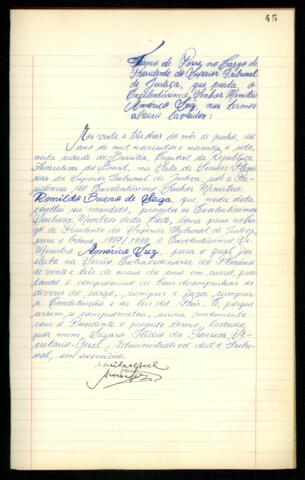 45
Termo de Posse no Cargo de
Presidente do Superior Tribunal
de Justiça, que presta o
Excelentíssimo Senhor Ministro
Américo Luz, nos termos
abaixo lavrados:
Aos vinte e três dias do mês de junho, do
ano de mil novecentos e noventa e sete,
nesta cidade de Brasília, Capital da República
Federativa do Brasil, na Sala de Sessões Plená-
rias do Superior Tribunal de Justiça, sob a Pre-
sidência do Excelentíssimo Senhor Ministro
Romildo Bueno de Souza, que nesta data
conclui seu mandato, presentes os Excelentíssimos
Senhores Ministros desta Corte, toma posse no cargo
de Presidente do Superior Tribunal de Justiça,
para o biênio 1997/1999, o Excelentíssimo Sr.
Ministro Américo Luz, para o qual foi
eleito na Sessão Extraordinária do Plenário
de vinte e três de maio do ano em curso, pres-
tando o compromisso de bem desempenhar os
deveres do cargo, cumprir e fazer cumprir
a Constituição e as leis do País. E, porque
assim se comprometeu, assina juntamente
com o Presidente o presente termo, lavrado
por mim, da Fonseca, Se-
cretário-Geral, Administrativo deste Tribu-
nal, em exercício.